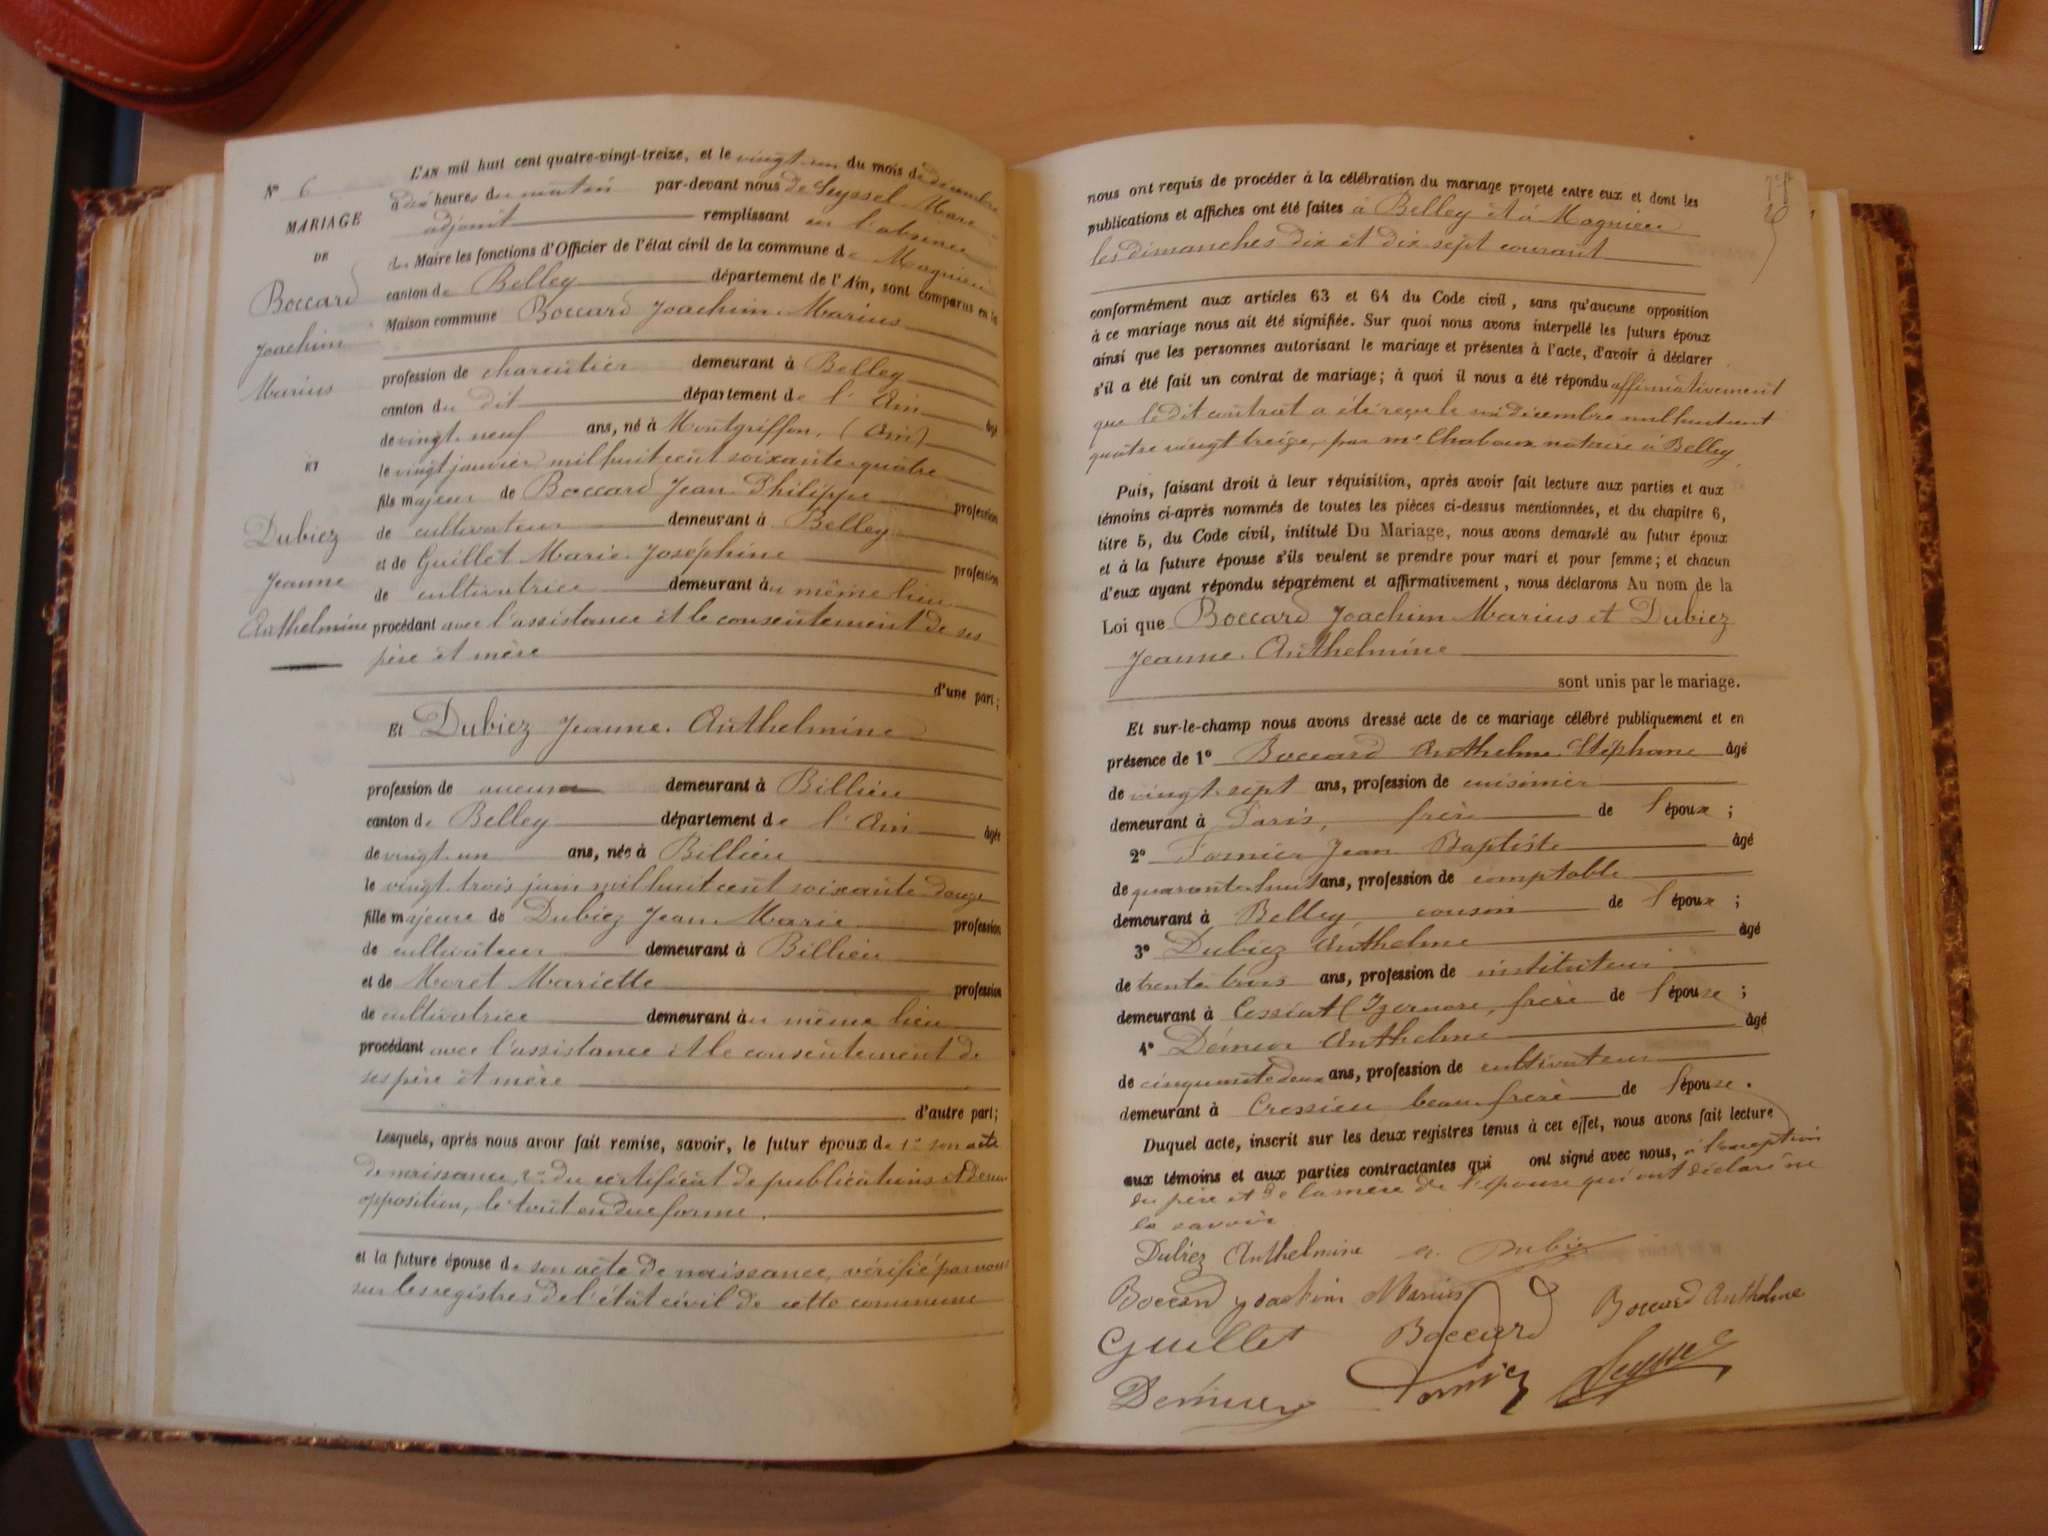 N° 6
MARIAGE
DE
Boccard
Joachim
Marius
ET
Dubiez
Jeanne
Anthelmine
L'AN mil huit cent quatre-vingt-treize, et le vingt-un du mois de décembre
à dix heures du matin par-devant nous de Seyssel Marc
adjoint remplissant en l'absence
du Maire les fonctions d'Officier de l'état civil de la commune de Magnieu
canton de Belley département de l'Ain, sont comparus en la
Maison commune Boccard Joachim Marius
profession de charcutier demeurant à Belley
canton du dit département de l'Ain âgé
de vingt-neuf ans, né à Montgriffon, (Ain)
le vingt janvier mil huit cent soixante-quatre
fils majeur de Boccard Jean Philippe profession
de cultivateur demeurant à Belley
et de Guillet Marie Joséphine profession
de cultivatrice demeurant au même lieu
procédant avec l'assistance et le consentement de ses
père et mère
d'une part;
Et Dubiez Jeanne Anthelmine
profession de aucune demeurant à Billieu
canton de Belley département de l'Ain âgée
de vingt-un ans, née à Billieu
le vingt trois juin mil huit cent soixante douze
fille majeure de Dubiez Jean Marie profession
de cultivateur demeurant à Billieu
et de Moret Mariette profession
de cultivatrice demeurant au même lieu
procédant avec l'assistance et le consentement de
ses père et mère
d'autre part;
Lesquels, après nous avoir fait remise, savoir, le futur époux de 1° son acte
de naissance, 2° du certificat de publications et de non
opposition, le tout en due forme.
et la future épouse de son acte de naissance, vérifié par nous
sur les registres de l'état civil de cette commune
nous ont requis de procéder à la célébration du mariage projeté entre eux et dont les
publications et affiches ont été faites à Belley et à Magnieu
les dimanches dix et dix-sept courant
conformément aux articles 63 et 64 du Code civil, sans qu'aucune opposition
à ce mariage nous ait été signifiée. Sur quoi nous avons interpellé les futurs époux
ainsi que les personnes autorisant le mariage et présentes à l'acte, d'avoir à déclarer
s'il a été fait un contrat de mariage; à quoi il nous a été répondu affirmativement
que le dit contrat a été reçu le six décembre mil huit cent
quatre vingt treize, par Me Chaboux notaire à Belley
Puis, faisant droit à leur réquisition, après avoir fait lecture aux parties et aux
témoins ci-après nommés de toutes les pièces ci-dessus mentionnées, et du chapitre 6,
titre 5, du Code civil, intitulé Du Mariage, nous avons demandé au futur époux
et à la future épouse s'ils veulent se prendre pour mari et pour femme; et chacun
d'eux ayant répondu séparément et affirmativement, nous déclarons Au nom de la
Loi que Boccard Joachim Marius et Dubiez
Jeanne Anthelmine
sont unis par le mariage.
Et sur-le-champ nous avons dressé acte de ce mariage célébré publiquement et en
présence de 1° Boccard Anthelme Stéphane âgé
de vingt-sept ans, profession de cuisinier
demeurant à Paris, frère de l'époux;
2° Fornier Jean Baptiste âgé
de quarante huit ans, profession de comptable
demeurant à Belley cousin de l'époux;
3° Dubiez Anthelme âgé
de trente trois ans, profession de instituteur
demeurant à Cessiat (Izernore, frère de l'épouse;
4° Démeur Anthelme âgé
de cinquante deux ans, profession de cultivateur
demeurant à Cressieu beau-frère de l'épouse.
Duquel acte, inscrit sur les deux registres tenus à cet effet, nous avons fait lecture
aux témoins et aux parties contractantes qui ont signé avec nous, à l'exception
du père et de la mère de l'épouse qui ont déclaré ne
le savoir
Dubiez Anthelmine A. Dubiez
Boccard Joachim Marius Boccard Anthelme
Guillet Boccard